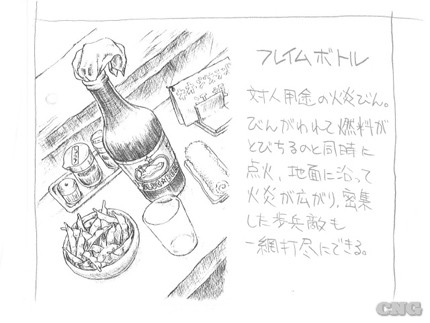 フレイムボトル
対人用途の火炎びん。
びんがわれて燃料が
とびちるのと同時に
点火、地面に沿って
火炎が広がり、密集
した歩兵敵も
一網打尽にできる。
CNG